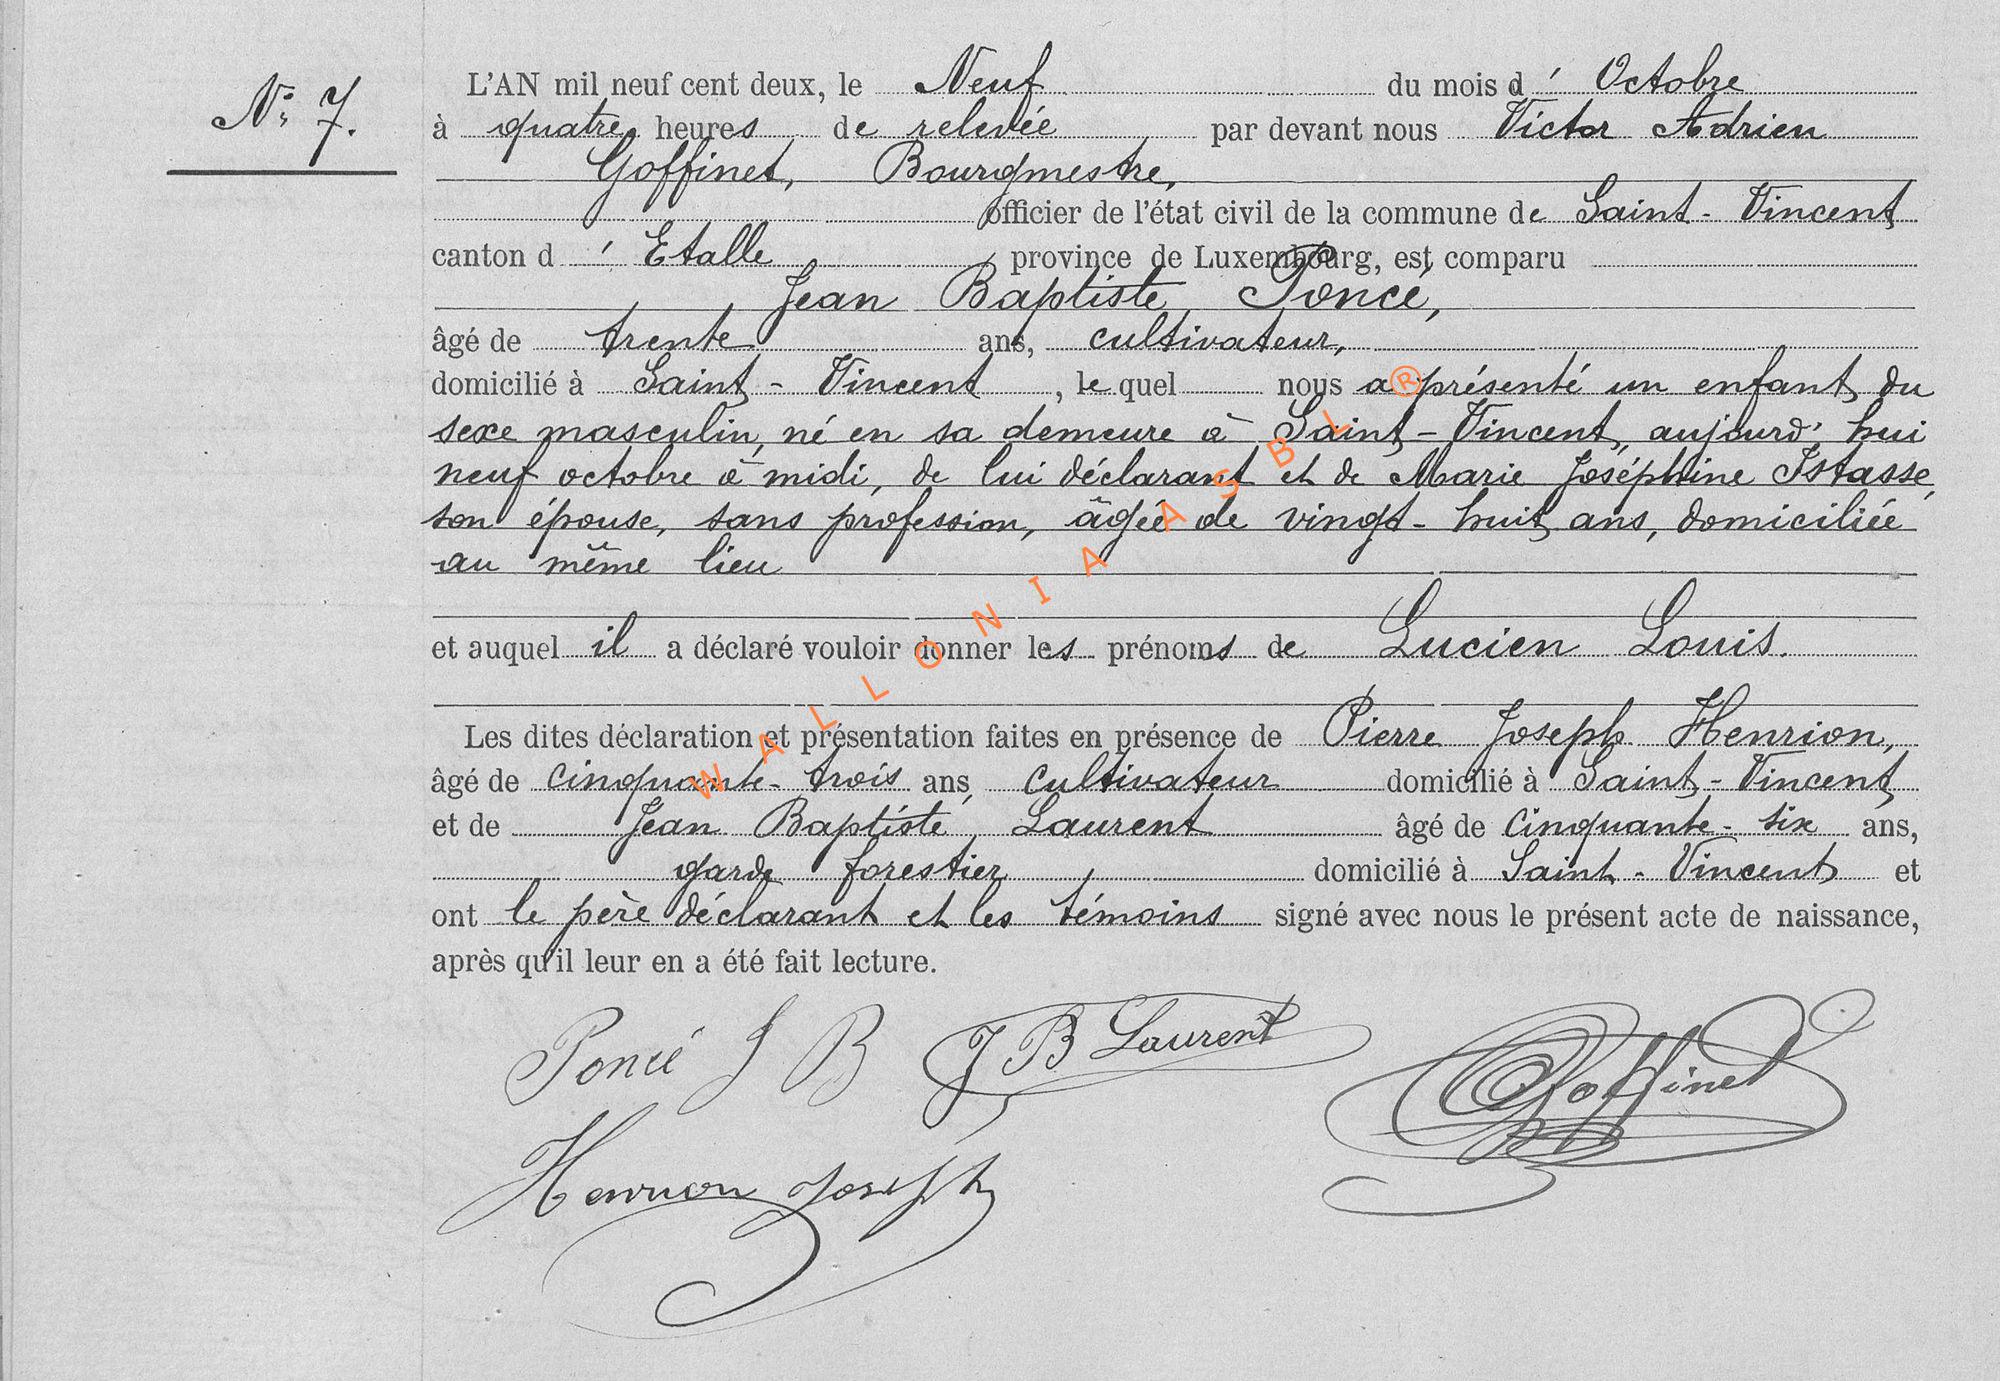 N° 7.
L'AN mil neuf cent deux, le Neuf du mois d' Octobre
à quatre heures de relevée par devant nous Victor Adrien
Goffinet, Bourgmestre,
officier de l'état civil de la commune de Saint-Vincent
canton d' Etalle province de Luxembourg, est comparu
Jean Baptiste Poncé,
âgé de trente ans, cultivateur,
domicilié à Saint-Vincent, lequel nous a présenté un enfant du
sexe masculin, né en sa demeure à Saint-Vincent, aujourd'hui
neuf octobre à midi, de lui déclarant et de Marie Joséphine Istasse,
son épouse, sans profession, âgée de vingt-huit ans, domiciliée
au même lieu
et auquel il a déclaré vouloir donner les prénoms de Lucien Louis.
Les dites déclaration et présentation faites en présence de Pierre Joseph Henrion,
âgé de cinquante-trois ans, cultivateur domicilié à Saint-Vincent,
et de Jean Baptiste Laurent âgé de cinquante-six ans,
garde forestier domicilié à Saint-Vincent et
ont le père déclarant et les témoins signé avec nous le présent acte de naissance,
après qu'il leur en a été fait lecture.
Poncé J B J B Laurent Goffinet
Henrion Joseph
WALLONIA ASBL ®